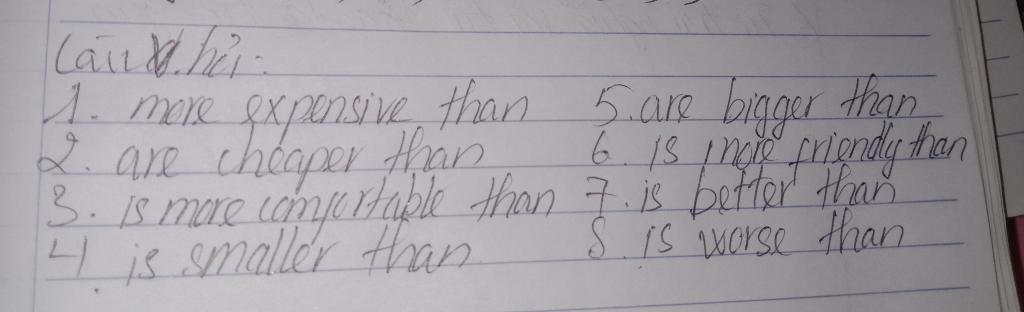 Câu hỏi:
1. more expensive than 5. are bigger than
2. are cheaper than 6. is more friendly than
3. is more comfortable than 7. is better than
4. is smaller than 8. is worse than